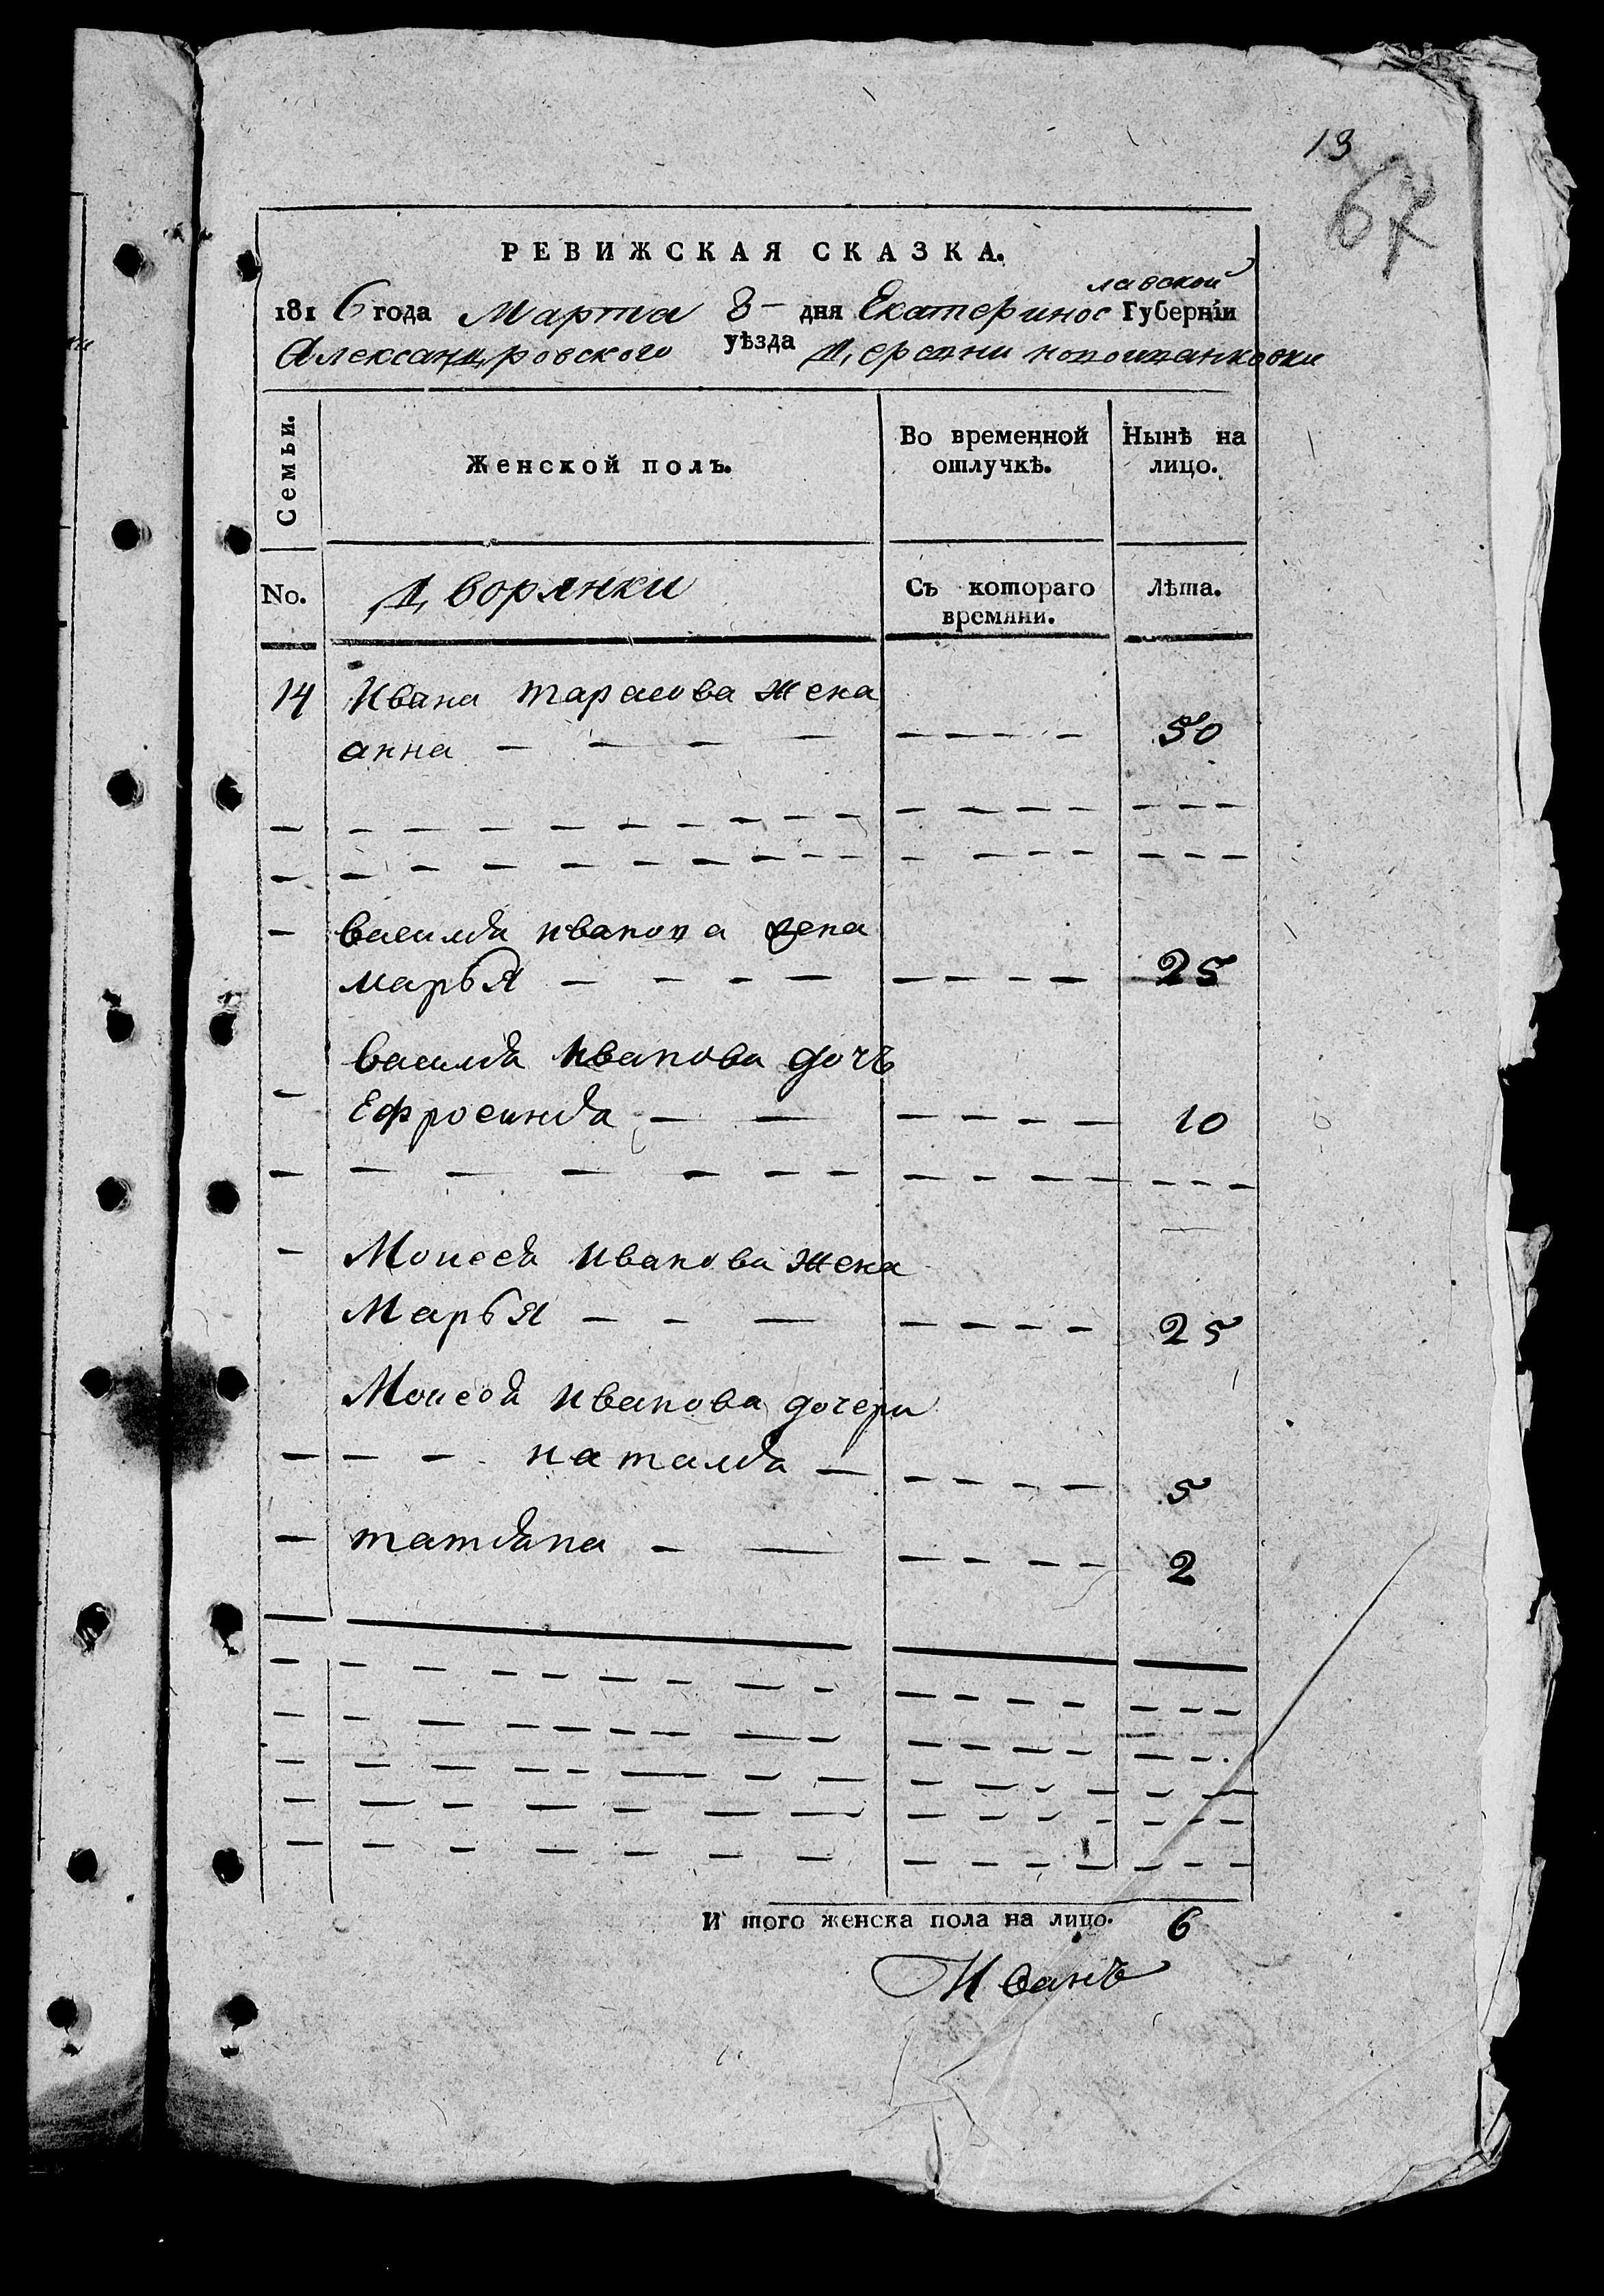 13
67
РЕВИЖСКАЯ СКАЗКА.
1816 года Марта 8 – дня Екатеринославской Губерніи
Александровского уѣзда Деревни
Семьи.
Женской полъ.
Во временной отлучкѣ.
Нынѣ на лицо.
No.
Дворянки
Съ котораго времяни.
Лѣта.
14 Ивана тарасова жена
анна – – – – – – – – 50
– василия иванова жена
марья – – – – – – – – 25
василия иванова дочъ
– Ефросиния – – – – – – 10
– Моисея иванова жена
Марья – – – – – – – 25
Моисея иванова дочери
– – – наталия – – – – – 5
– татияна – – – – – – 2
И того женска пола на лицо. 6
Иванъ